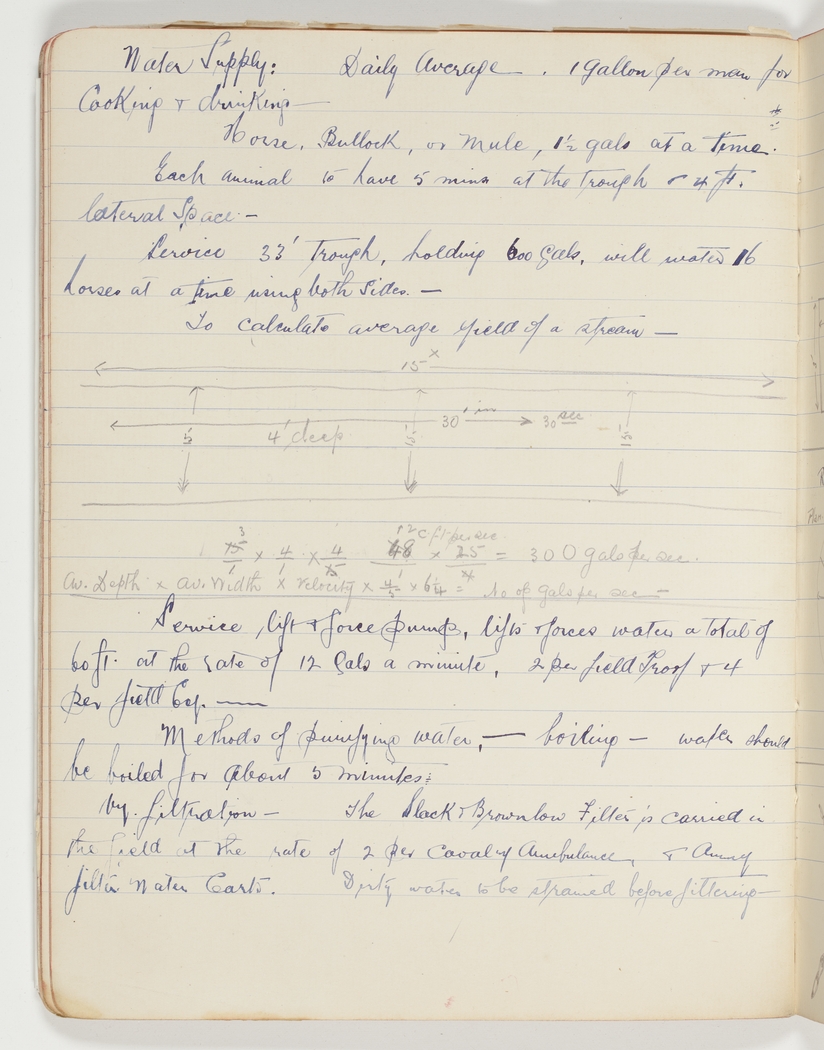 Water Supply: Daily Average . 1 Gallon per man for
Cooking & drinking —
Horse, Bullock, or Mule, 1½ gals at a time.
Each animal to have 5 mins at the trough & 4 ft.
lateral Space. —
Service 33' Trough, holding 600 Gals, will water 16
horses at a time using both Sides. —
To calculate average yield of a stream —
15 x
5 4' deep 5 30' in 30 sec 5
12 c. ft per sec.
3
15/1 x 4/1 x 4/15 48/1 x 25/4 = 300 gals per sec.
Av. Depth x av. Width x velocity x 4/5 x 6¼ = No of gals per sec —
Service lift & force pump, lifts & forces water a total of
60 ft. at the rate of 12 Gals a minute, 2 per field Troop & 4
per field Coy. —
Methods of purifying water, — boiling — water should
be boiled for about 5 minutes:
by. filtration — The Slack & Brownlow Filter is carried in
the field at the rate of 2 per Cavalry Ambulance, & Army
filter Water Carts. Dirty water to be strained before filtering —